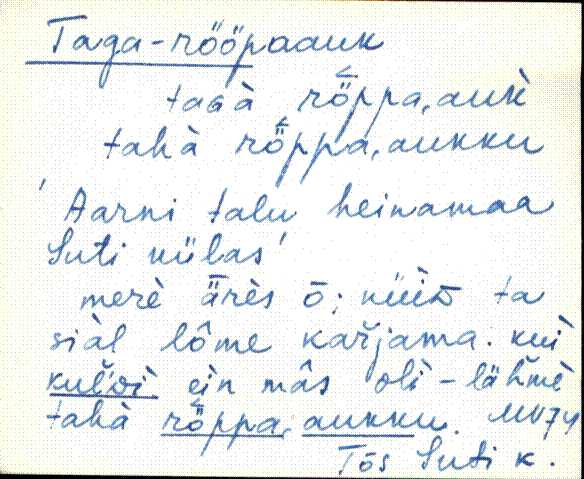 Taga-rööpaauk
taGà rö̬ppa,auk̀
tahà rö̬ppa,aukku
'Aarni talu heinamaa
Suti külas'
merè ǟrès ō; nüi᷈d ta
siàl lôme kaŕjama. kuì
ein mâs olì - lähmè
tahà rö̬ppa,aukku. MV74
Tõs Suti k.